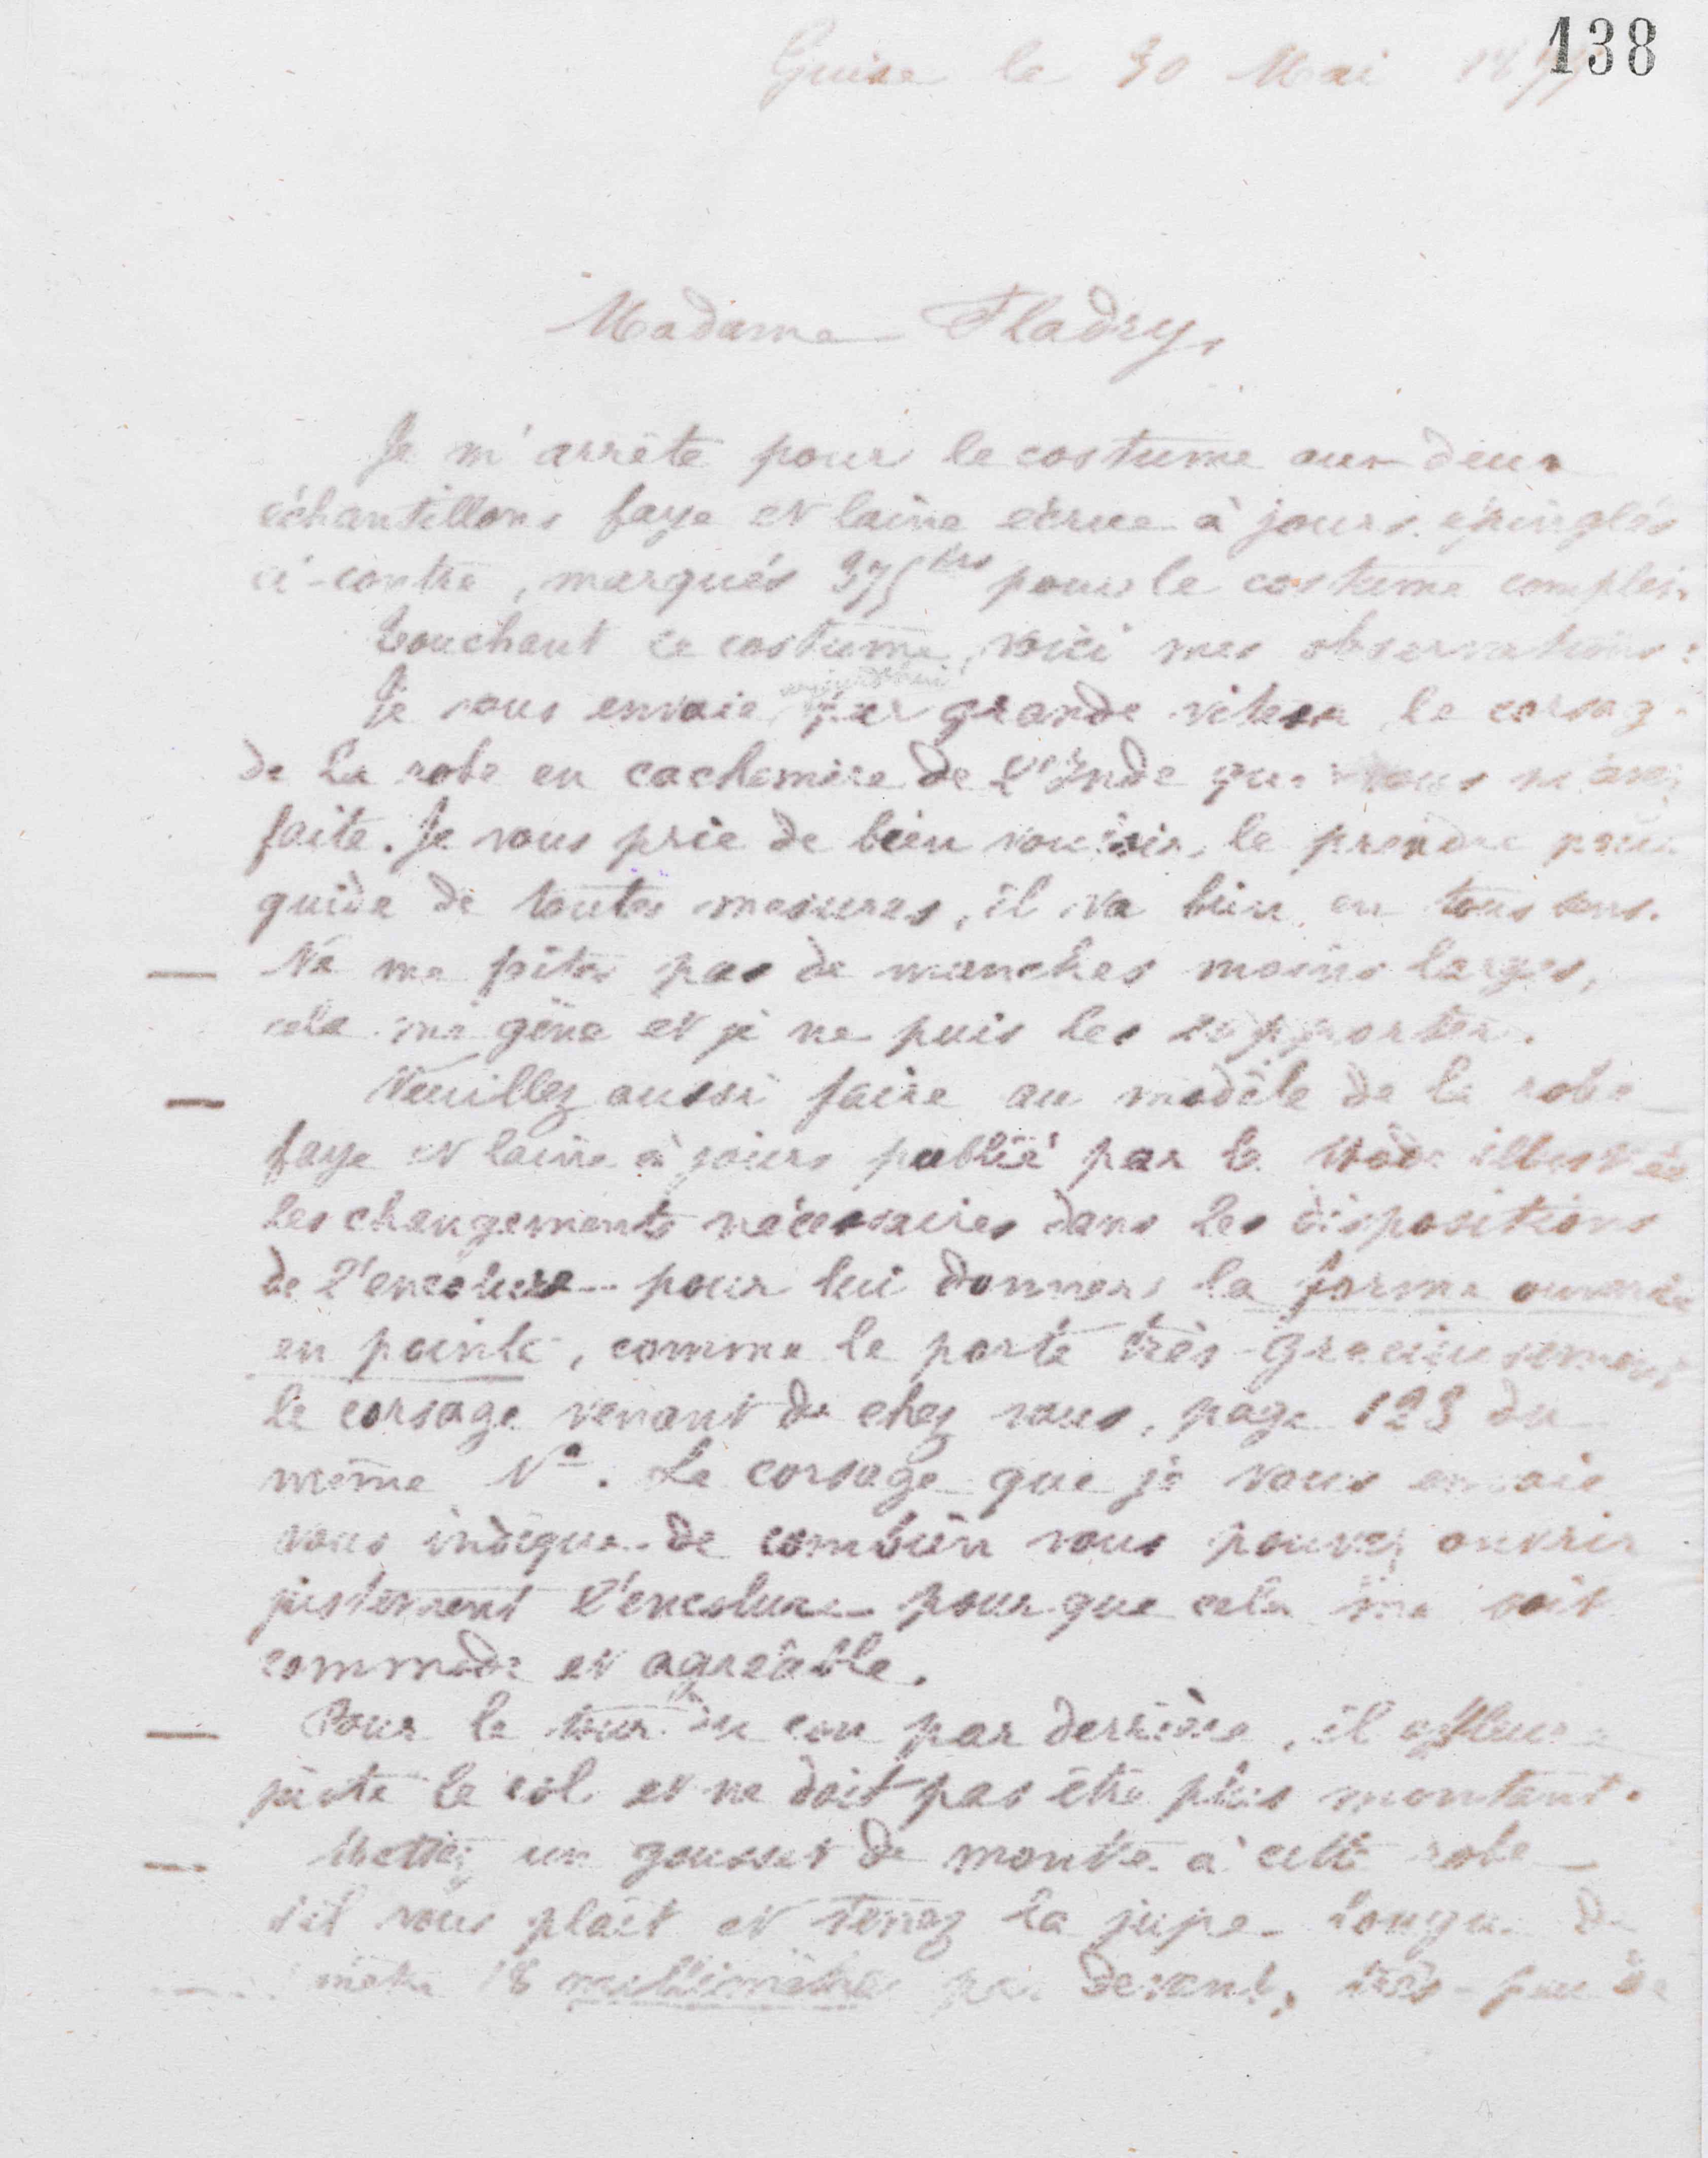 138
Guise le 30 Mai
Madame Fladry,
Je m'arrête pour le costume aux deux
échantillons faye et laine écrue à jours épinglés
ci-contre, marqués 375 frs pour le costume complet.
Touchant ce costume, voici mes observations :
Je vous envoie aujourd'hui par grande vitesse le corsage
de la robe en cachemire de l'Inde que vous m'avez
faite. Je vous prie de bien vouloir le prendre pour
guide de toutes mesures, il va bien en tous sens.
— Ne me faites pas de manches moins larges,
cela me gêne et je ne puis les supporter.
— Veuillez aussi faire au modèle de la robe
faye et laine à jours publié par la Mode illustrée
les changements nécessaires dans les dispositions
de l'encolure pour lui donner la forme ouverte
en pointe, comme le porte très-gracieusement
le corsage venant de chez vous, page 123 du
même Nº. Le corsage que je vous envoie
vous indique de combien vous pouvez ouvrir
justement l'encolure pour que cela me soit
commode et agréable.
— Pour le tour du cou par derrière, il affleure
juste le col et ne doit pas être plus montant.
— Mettez un gousset de montre à cette robe
s'il vous plait et tenez la jupe longue de
1 mètre 18 millimètres par devant, très-peu de